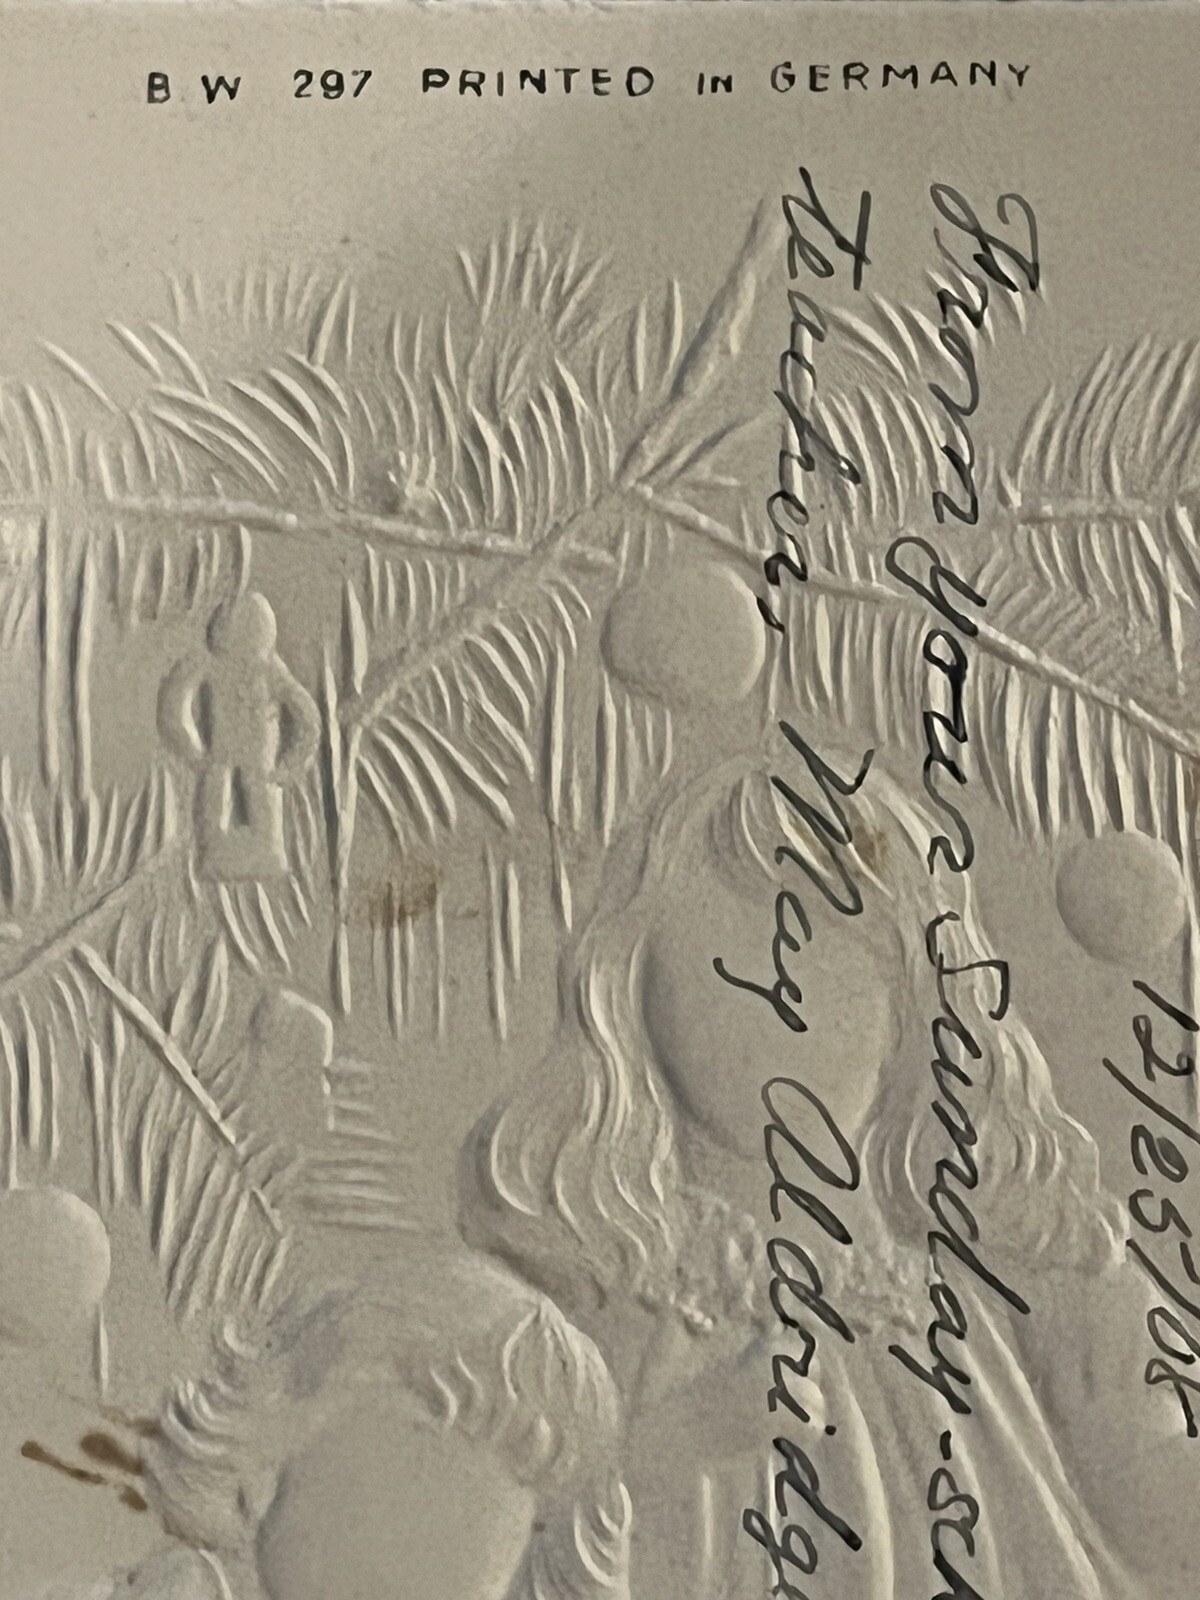 B W 297 PRINTED IN GERMANY
12/25/08
From Your Sunday-sch
teacher, May Aldridg